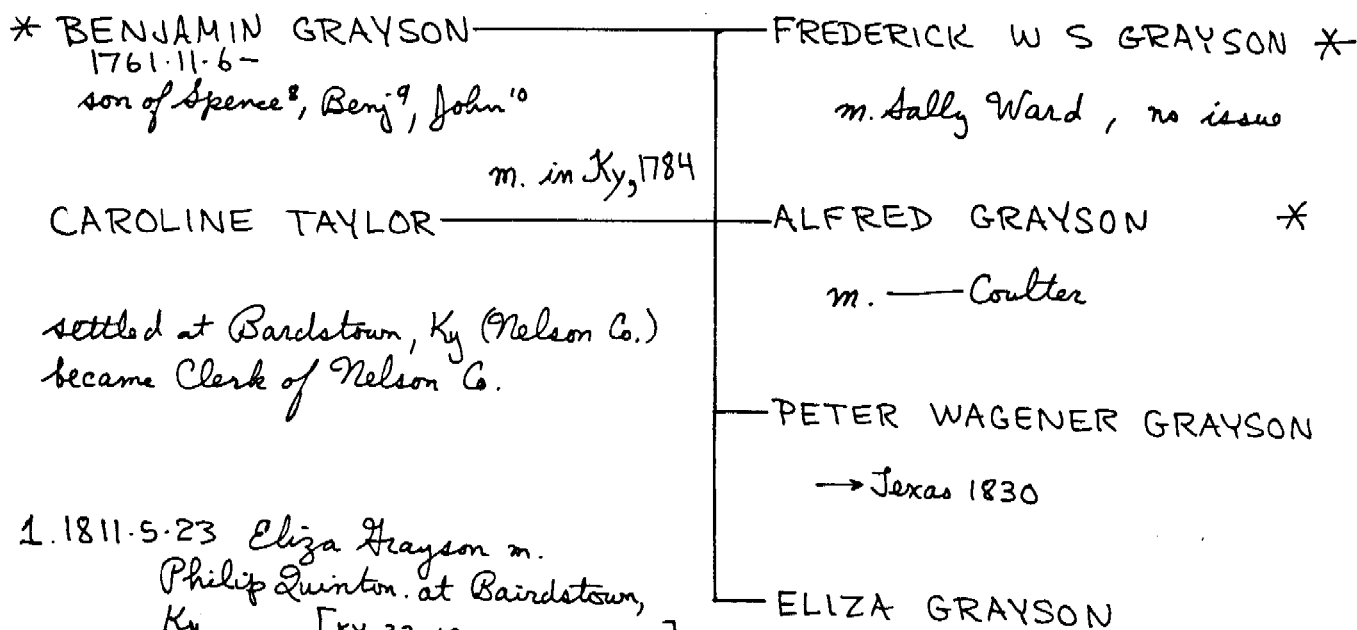 * BENJAMIN GRAYSON
1761·11·6-
son of Spence⁸, Benj⁹, John¹⁰
m. in Ky, 1784
CAROLINE TAYLOR
settled at Bardstown, Ky (Nelson Co.)
became Clerk of Nelson Co.
1. 1811·5·23 Eliza Grayson m.
Philip Quinton. at Bairdstown,
Ky
FREDERICK W S GRAYSON *
m. Sally Ward, no issue
ALFRED GRAYSON *
m. —— Coulter
PETER WAGENER GRAYSON
→ Texas 1830
ELIZA GRAYSON